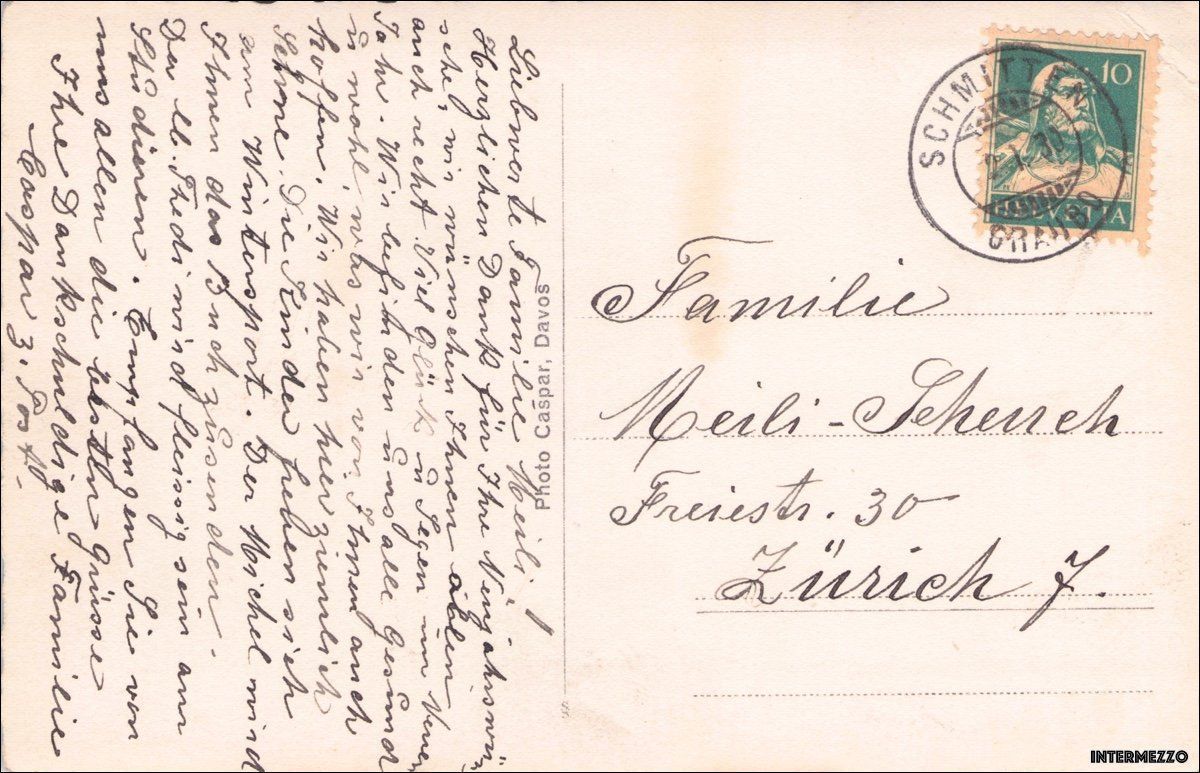 Liebwerte Familie Meili!
Herzlichen Dank für Ihre Neujahrswün
sche, wir wünschen Ihnen allen
auch recht Viel Glück u Segen im Neuen
Jahr. Wir befinden uns alle Gesund
u wohl, was wir von Ihnen auch
hoffen. Wir haben hier ziemlich
Schne. Die Kinder freuen sich
am Wintersport. Der Michel wird
Ihnen das Buch zusenden.
Der lb. Fredi wird fleissig sein am
Studieren. Empfangen Sie von
uns allen die besten Grüsse
Ihre Dankschuldige Familie
Caspar z. Post.
Photo Caspar, Davos
SCHMITTEN
2.1.30
GRAUBD
10
HELVETIA
Familie
Meili-Scherrch
Freiestr. 30
Zürich 7.
INTERMEZZO